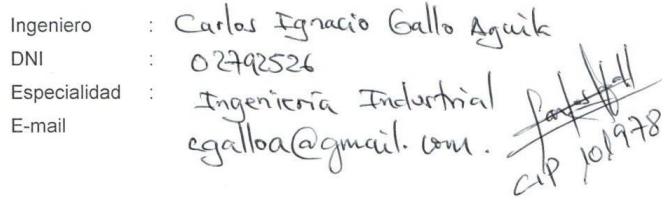 Ingeniero : Carlos Ignacio Gallo Aguila
DNI : 02792526
Especialidad : Ingeniería Industrial
E-mail cgalloa@gmail.com.
CIP 101978